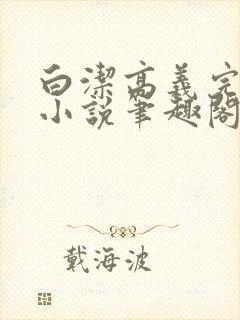 白潔高義完
小說筆趣閣
戴海波